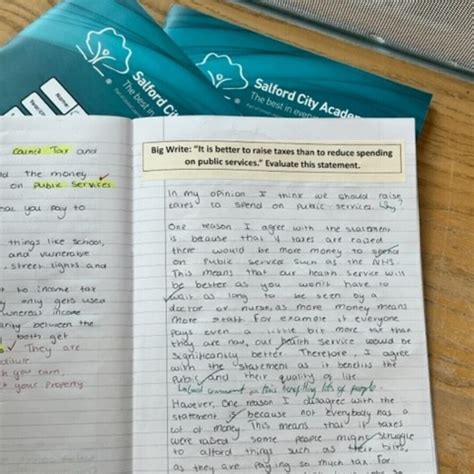 Salford City
The best in
Salford City Acade
The best in every
Name:
Council Tax and
the money
on public services
you pay to
things like school,
and vunerable
street lights and
to income tax
only gets used
whereas income
between the
both get
They are
you earn,
your property
Big Write: "It is better to raise taxes than to reduce spending
on public services." Evaluate this statement.
In my opinion I think we should raise
taxes to spend on public services. Why?
One reason I agree with the statement
is because that if taxes are raised
there would be more money to spend
on public service such as the NHS.
This means that our health service will
be better as you won't have to
wait as long to be seen by a
doctor or nurse, as more money means
more staff. For example if everyone
pays even a little bit more tax than
they are now, our health service would be
significantly better. Therefore, I agree
with the statement as it benefits the
public and their quality of life.
Good comment on this lots of people.
However, one reason I disagree with the
statement is because not everybody has a
lot of money. This means that if taxes
were raised some people might struggle
to afford things such as their bills,
as they are paying so much tax. For